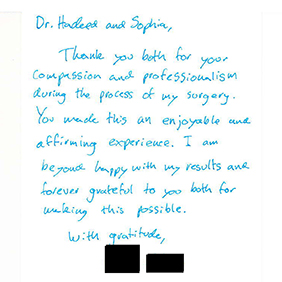 Dr. Hadeed and Sophia,
Thank you both for your
compassion and professionalism
during the process of my surgery.
You made this an enjoyable and
affirming experience. I am
beyond happy with my results and
forever grateful to you both for
making this possible.
With gratitude,